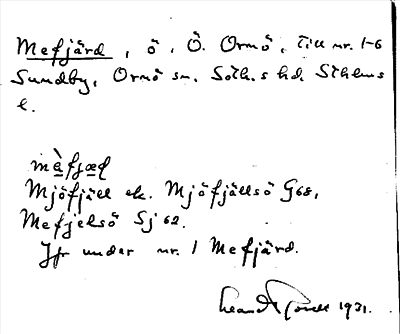 Mefjärd, ö, Ö. Ormö, till nr. 1-6
Sundby, Ormö sn. Soth.s hd. Sthlms
l.
mèfjæḷ
Mjöfjäll el. Mjöfjällsö G68,
Mefjelsö Sj 62.
Jfr under nr. 1 Mefjärd.
1931.